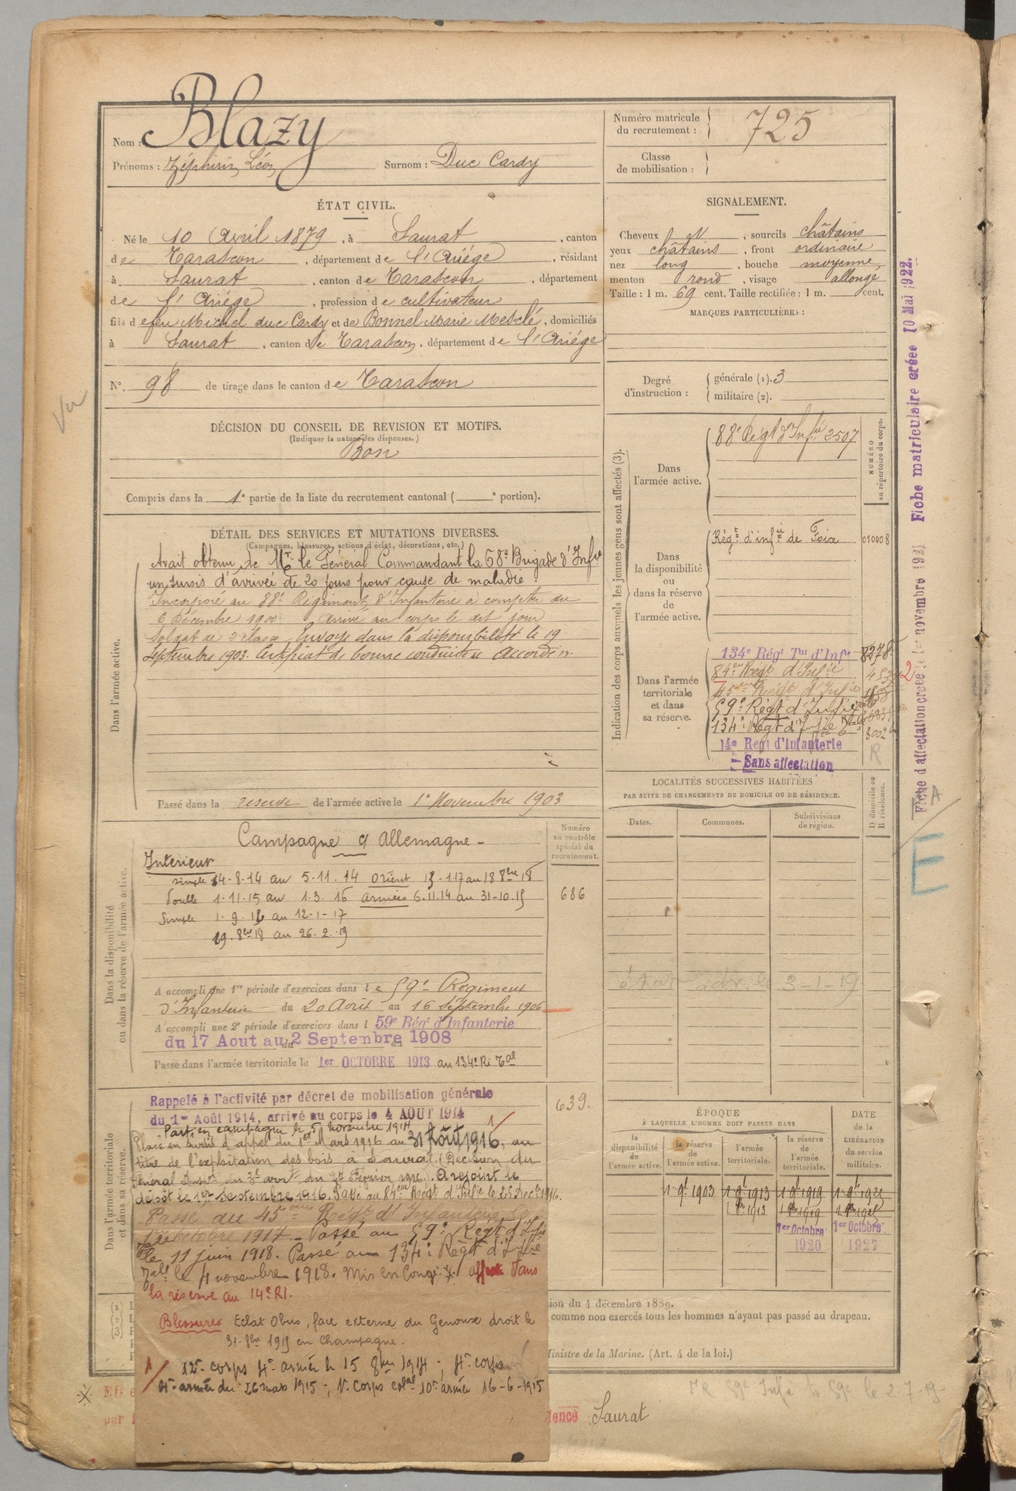 Nom : Blazy
Prénoms : Zéphirin Léon Surnom : Duc Cardy
Numéro matricule du recrutement : 725
Classe de mobilisation :
ÉTAT CIVIL.
Né le 10 Avril 1879, à Saurat, canton
de Tarascon, département de l'Ariège, résidant
à Saurat, canton de Tarascon, département
de l'Ariège, profession de cultivateur
fils de feu Michel duc Cardy et de Bonnel Marie, domiciliés
à Saurat, canton de Tarascon, département de l'Ariège
N° 98 de tirage dans le canton de Tarascon
SIGNALEMENT.
Cheveux, sourcils châtains
yeux châtains, front ordinaire
nez long, bouche moyenne
menton rond, visage allongé
Taille : 1 m. 69 cent. Taille rectifiée : 1 m. cent.
MARQUES PARTICULIÈRES :
Degré d'instruction : générale (1). 3
militaire (2).
DÉCISION DU CONSEIL DE REVISION ET MOTIFS.
(Indiquer la nature des dispenses.)
Bon
Compris dans la 1e partie de la liste du recrutement cantonal ( portion).
DÉTAIL DES SERVICES ET MUTATIONS DIVERSES.
(Campagnes, blessures, actions d'éclat, décorations, etc.)
Dans l'armée active.
Avait obtenu de Mr. le Général Commandant la 68e Brigade d'Infie
un sursis d'arrivée de 20 jours pour cause de maladie
Incorporé au 88e Régiment d'Infanterie à compter du
6 Décembre 1900 arrivé au corps le dit jour
Soldat de 2e classe. Envoyé dans la disponibilité le 19
Septembre 1903. Certificat de bonne conduite accordé.
Passé dans la réserve de l'armée active le 1er Novembre 1903
Indication des corps auxquels les jeunes gens sont affectés (3).
NUMÉRO au répertoire du corps.
Dans l'armée active.
88e Régt d'Infie 2507
Dans la disponibilité ou dans la réserve de l'armée active.
Régt d'infie de Foix 01000 8
Dans l'armée territoriale et dans sa réserve.
134e Régt Tal d'Infie 8278
84e Régt d'Infie
45e Régt d'Infie
59e Régt d'Infie
134e Régt d'Infie
14e Régt d'Infanterie
Sans affectation
R
Fiche matriculaire créée 10 Mai 1922.
LOCALITÉS SUCCESSIVES HABITÉES
PAR SUITE DE CHANGEMENTS DE DOMICILE OU DE RÉSIDENCE.
Dates.
Communes.
Subdivisions de région.
D domicile ou R résidence.
Dans la disponibilité ou dans la réserve de l'armée active.
Numéro au contrôle spécial du recrutement.
686
Campagne c/ Allemagne
Intérieur
simple 4-8-14 au 5-11-14 Orient 13-1-17 au 18 8bre 18
double 1-11-15 au 1-3-16 armées 6-11-14 au 31-10-15
Simple 1-9-16 au 12-1-17
19-8bre 18 au 26-2-19
A accompli une 1re période d'exercices dans le 59e Régiment
d'Infanterie du 20 Août au 16 Septembre 1906
A accompli une 2e période d'exercices dans l 59e Régt d'Infanterie
du 17 Aout au 2 Septembre 1908
Passé dans l'armée territoriale le 1er OCTOBRE 1913 au 134e Ri Tal
3-1-19
639.
Rappelé à l'activité par décret de mobilisation générale
du 1er Août 1914, arrivé au corps le 4 AOUT 1914
Parti en campagne le 5 novembre 1914
Placé en sursis d'appel du 1er Mars 1916 au 31 Août 1916, au
titre de l'exploitation des bois à Saurat. (Décision du
A rejoint le
dépôt le 1er Septembre 1916. Passé au 84e Régt d'Infie le 25 Décbe 1916.
Passé au 45e Régt d'Infanterie le
1er octobre 1917. Passé au 59e Régt d'Infie
le 11 juin 1918. Passé au 134e Régt d'Infie
le 4 novembre 1918. Mis en Congé affecté dans
la réserve au 14e RI.
Blessures Eclat Obus, face externe du Genoux droit le
1915 en Champagne.
12e corps 4e armée le 15 8bre 1914; 4e corps
4e armée du 26 mars 1915; 1er Corps colal 10e armée 16-6-1915
ÉPOQUE
À LAQUELLE L'HOMME DOIT PASSER DANS
DATE de la LIBÉRATION du service militaire.
la disponibilité de l'armée active.
la réserve de l'armée active.
l'armée territoriale.
la réserve de l'armée territoriale.
1 9e 1903 1 9e 1913 1 9e 1919
1er Octobre 1920
1er Octobre 1927
ion du 4 décembre 1889.
comme non exercés tous les hommes n'ayant pas passé au drapeau.
Ministre de la Marine. (Art. 4 de la loi.)
Saurat